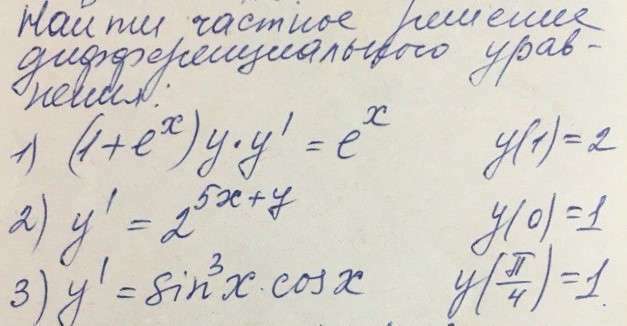 Найти частное решение
дифференциального урав-
нения:
1) (1+e^x)y·y' = e^x y(1)=2
2) y' = 2^{5x+y} y(0)=1
3) y' = sin^3 x·cosx y(π/4)=1